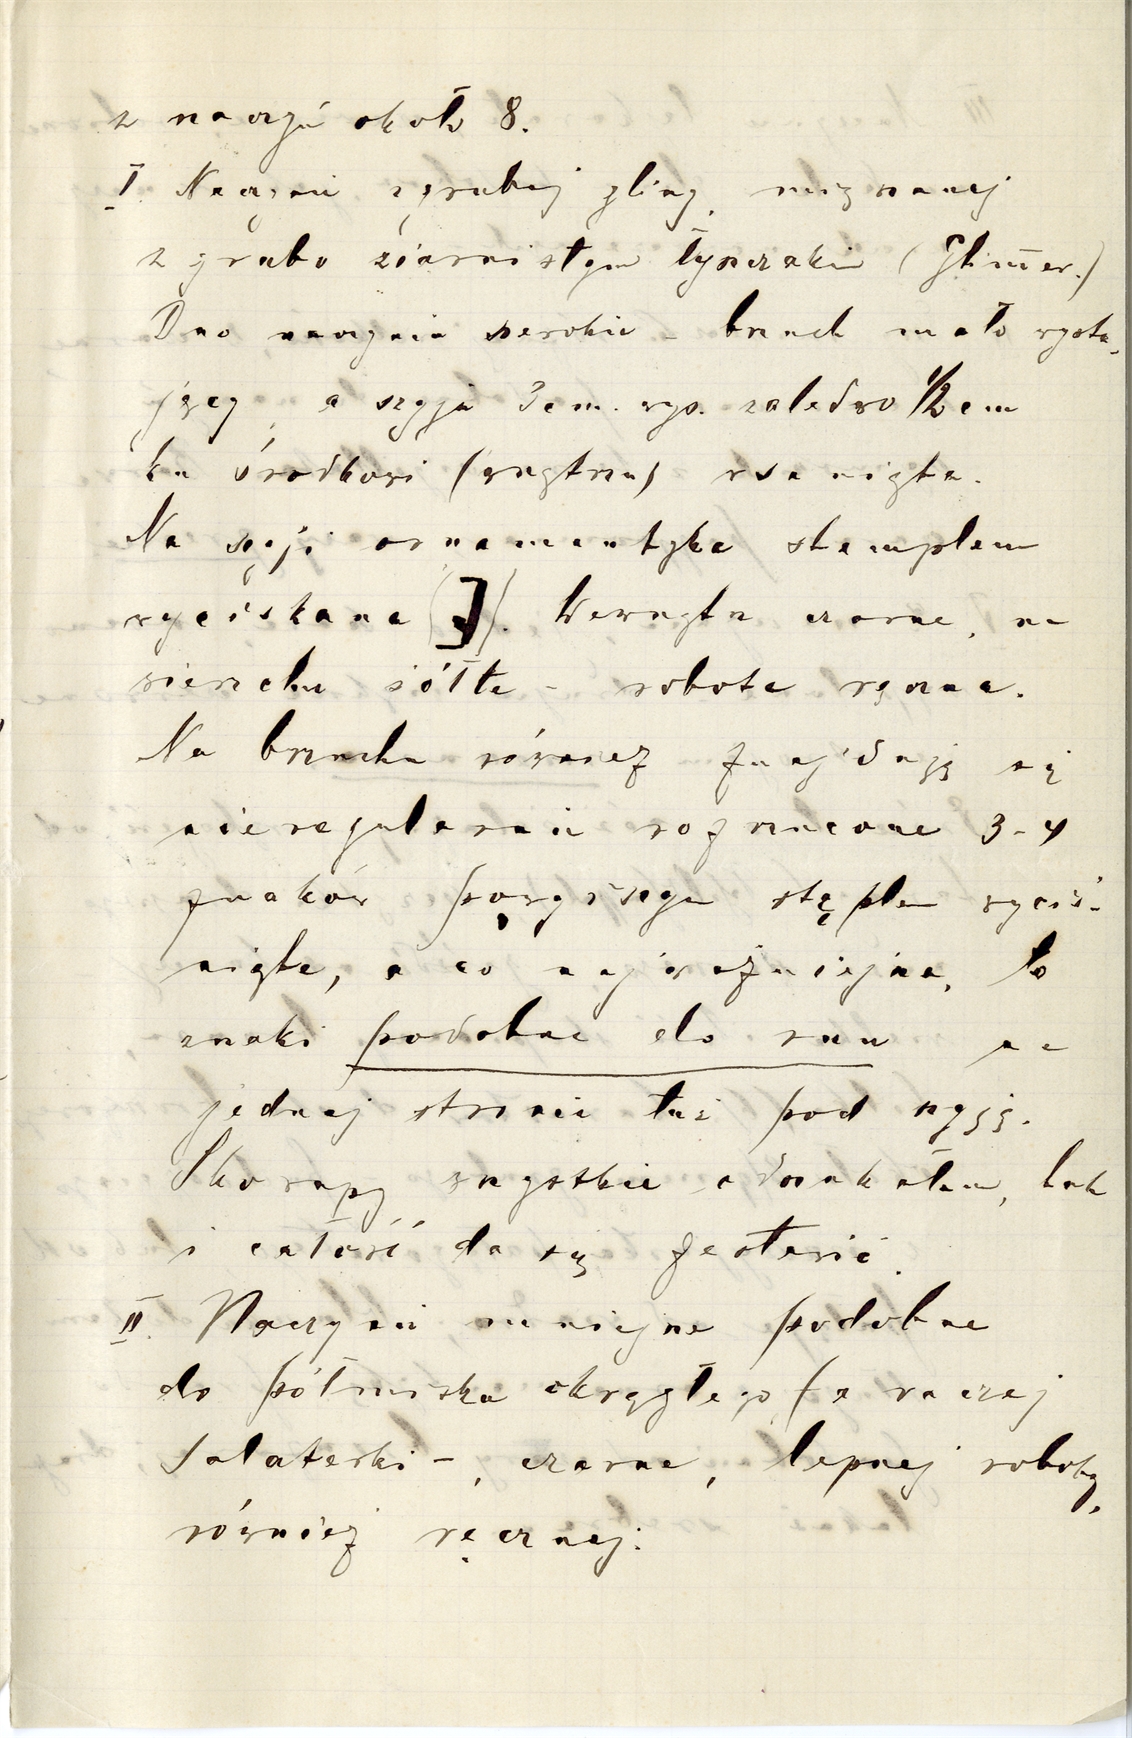 z naczyń około 8.
I Naczynie z grubej gliny, mięszanej
z grubo ziarnistym łyszczakiem (Glim̄er.)
Dno naczynia szerokie – brzuch mało wysta-
jący, a szyja 3 cm. wys. zaledwo 1/2 cm
ku środkowi (wnętrzu) wsunięta.
Na szyji ornamentyka stemplem
wyciskana (]). Wewnątrz czarne, na
wierzchu żółte – robota ręczna.
Na brzuchu również znajdują się
nieregularnie rozrzucone 3-4
znaków powyższym stęplem wyciś-
nięte, a co najważniejsze, to
znaki podobne do run na
jednej stronie tuż pod szyją.
Skorupy wszystkie tak
i całość da się zestawić.
II. Naczynie mniejsze podobne
do półmiska okrągłego (a raczej
Salaterki –, czarne, lepszej roboty,
również ręcznej.